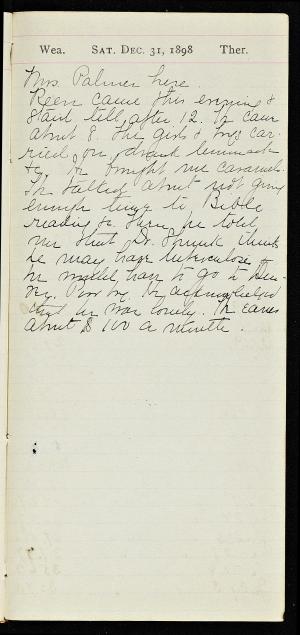 Wea. SAT. DEC. 31, 1898 Ther.
Mrs. Palmer here.
Keen came this evening &
staid till after 12. He came
about 8. The girls & boys car-
ried on, drank lemonade
&c. He brought me caramels.
He talked about not giving
enough time to Bible
reading &c. Then he told
me that Dr. think
he may have tuberculosis &
he would have to go to Den-
ver. Poor boy. He acknowledged
that he was lonely. He earns
about $100 a minute.